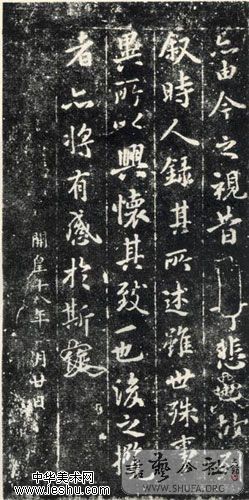 亦由今之視昔悲夫
叙時人錄其所述雖世殊事
異所以興懷其致一也後之
者亦將有感於斯
開皇十八年 月廿日
中华美术网
www.leshu.com
藝公社
WWW.SHUFA.ORG